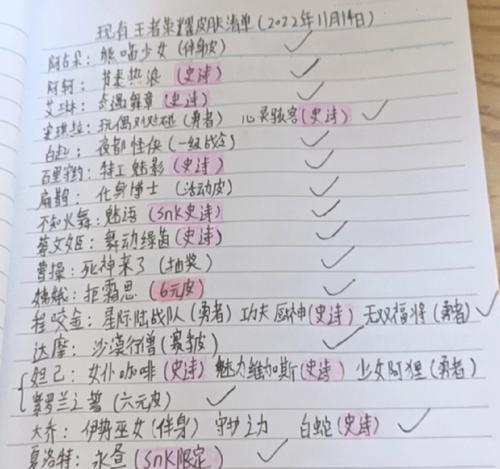 现有王者荣耀皮肤清单(2022年11月19日)
阿古朵:熊喵少女(伴身皮)
阿轲:节奏热浪(史诗)
艾琳:女武神(史诗)
安琪拉:玩偶对对碰(勇者) 心灵骇客(史诗)
白起:夜都怪侠(一级战令)
百里守约:特工魅影(史诗)
扁鹊:化身博士(活动皮)
不知火舞:魅语(SnK史诗)
蔡文姬:舞动绿茵(史诗)
曹操:死神来了(抽奖)
嫦娥:拒霜思(6元皮)
程咬金:星际陆战队(勇者) 功夫厨神(史诗) 无双福将(勇者)
达摩:沙漠行僧(赛季皮)
妲己:女仆咖啡(史诗) 魅力维加斯(史诗) 少女阿狸(勇者)
(六元皮)
大乔:伊势巫女(伴身) 守护之力 白蛇(史诗)
夏洛特:永昼(SnK限定)